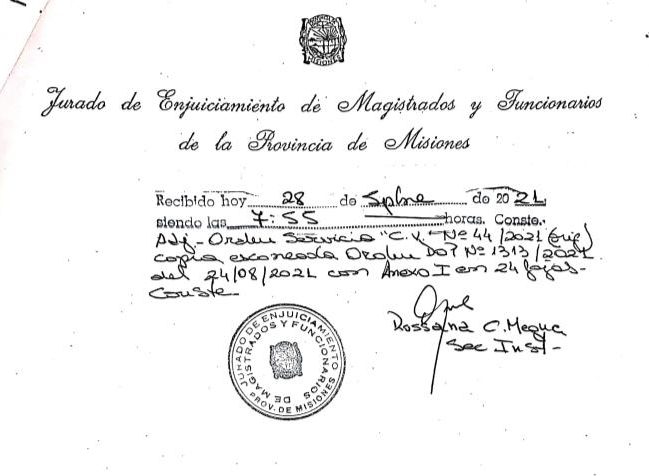 MISIONES
Jurado de Enjuiciamiento de Magistrados y Funcionarios
de la Provincia de Misiones
Recibido hoy 28 de Spbre de 2021
siendo las 7:55 horas. Conste.
Adj- Orden Servicio "C.V." Nº 44/2021 (orig)
copia escaneada Orden DO7 Nº 1313/2021
del 24/08/2021 con Anexo I en 24 fojas-
Conste-
Rossana C.
Sec Inst-
JURADO DE ENJUICIAMIENTO
DE MAGISTRADOS Y FUNCIONARIOS
PROV. DE MISIONES